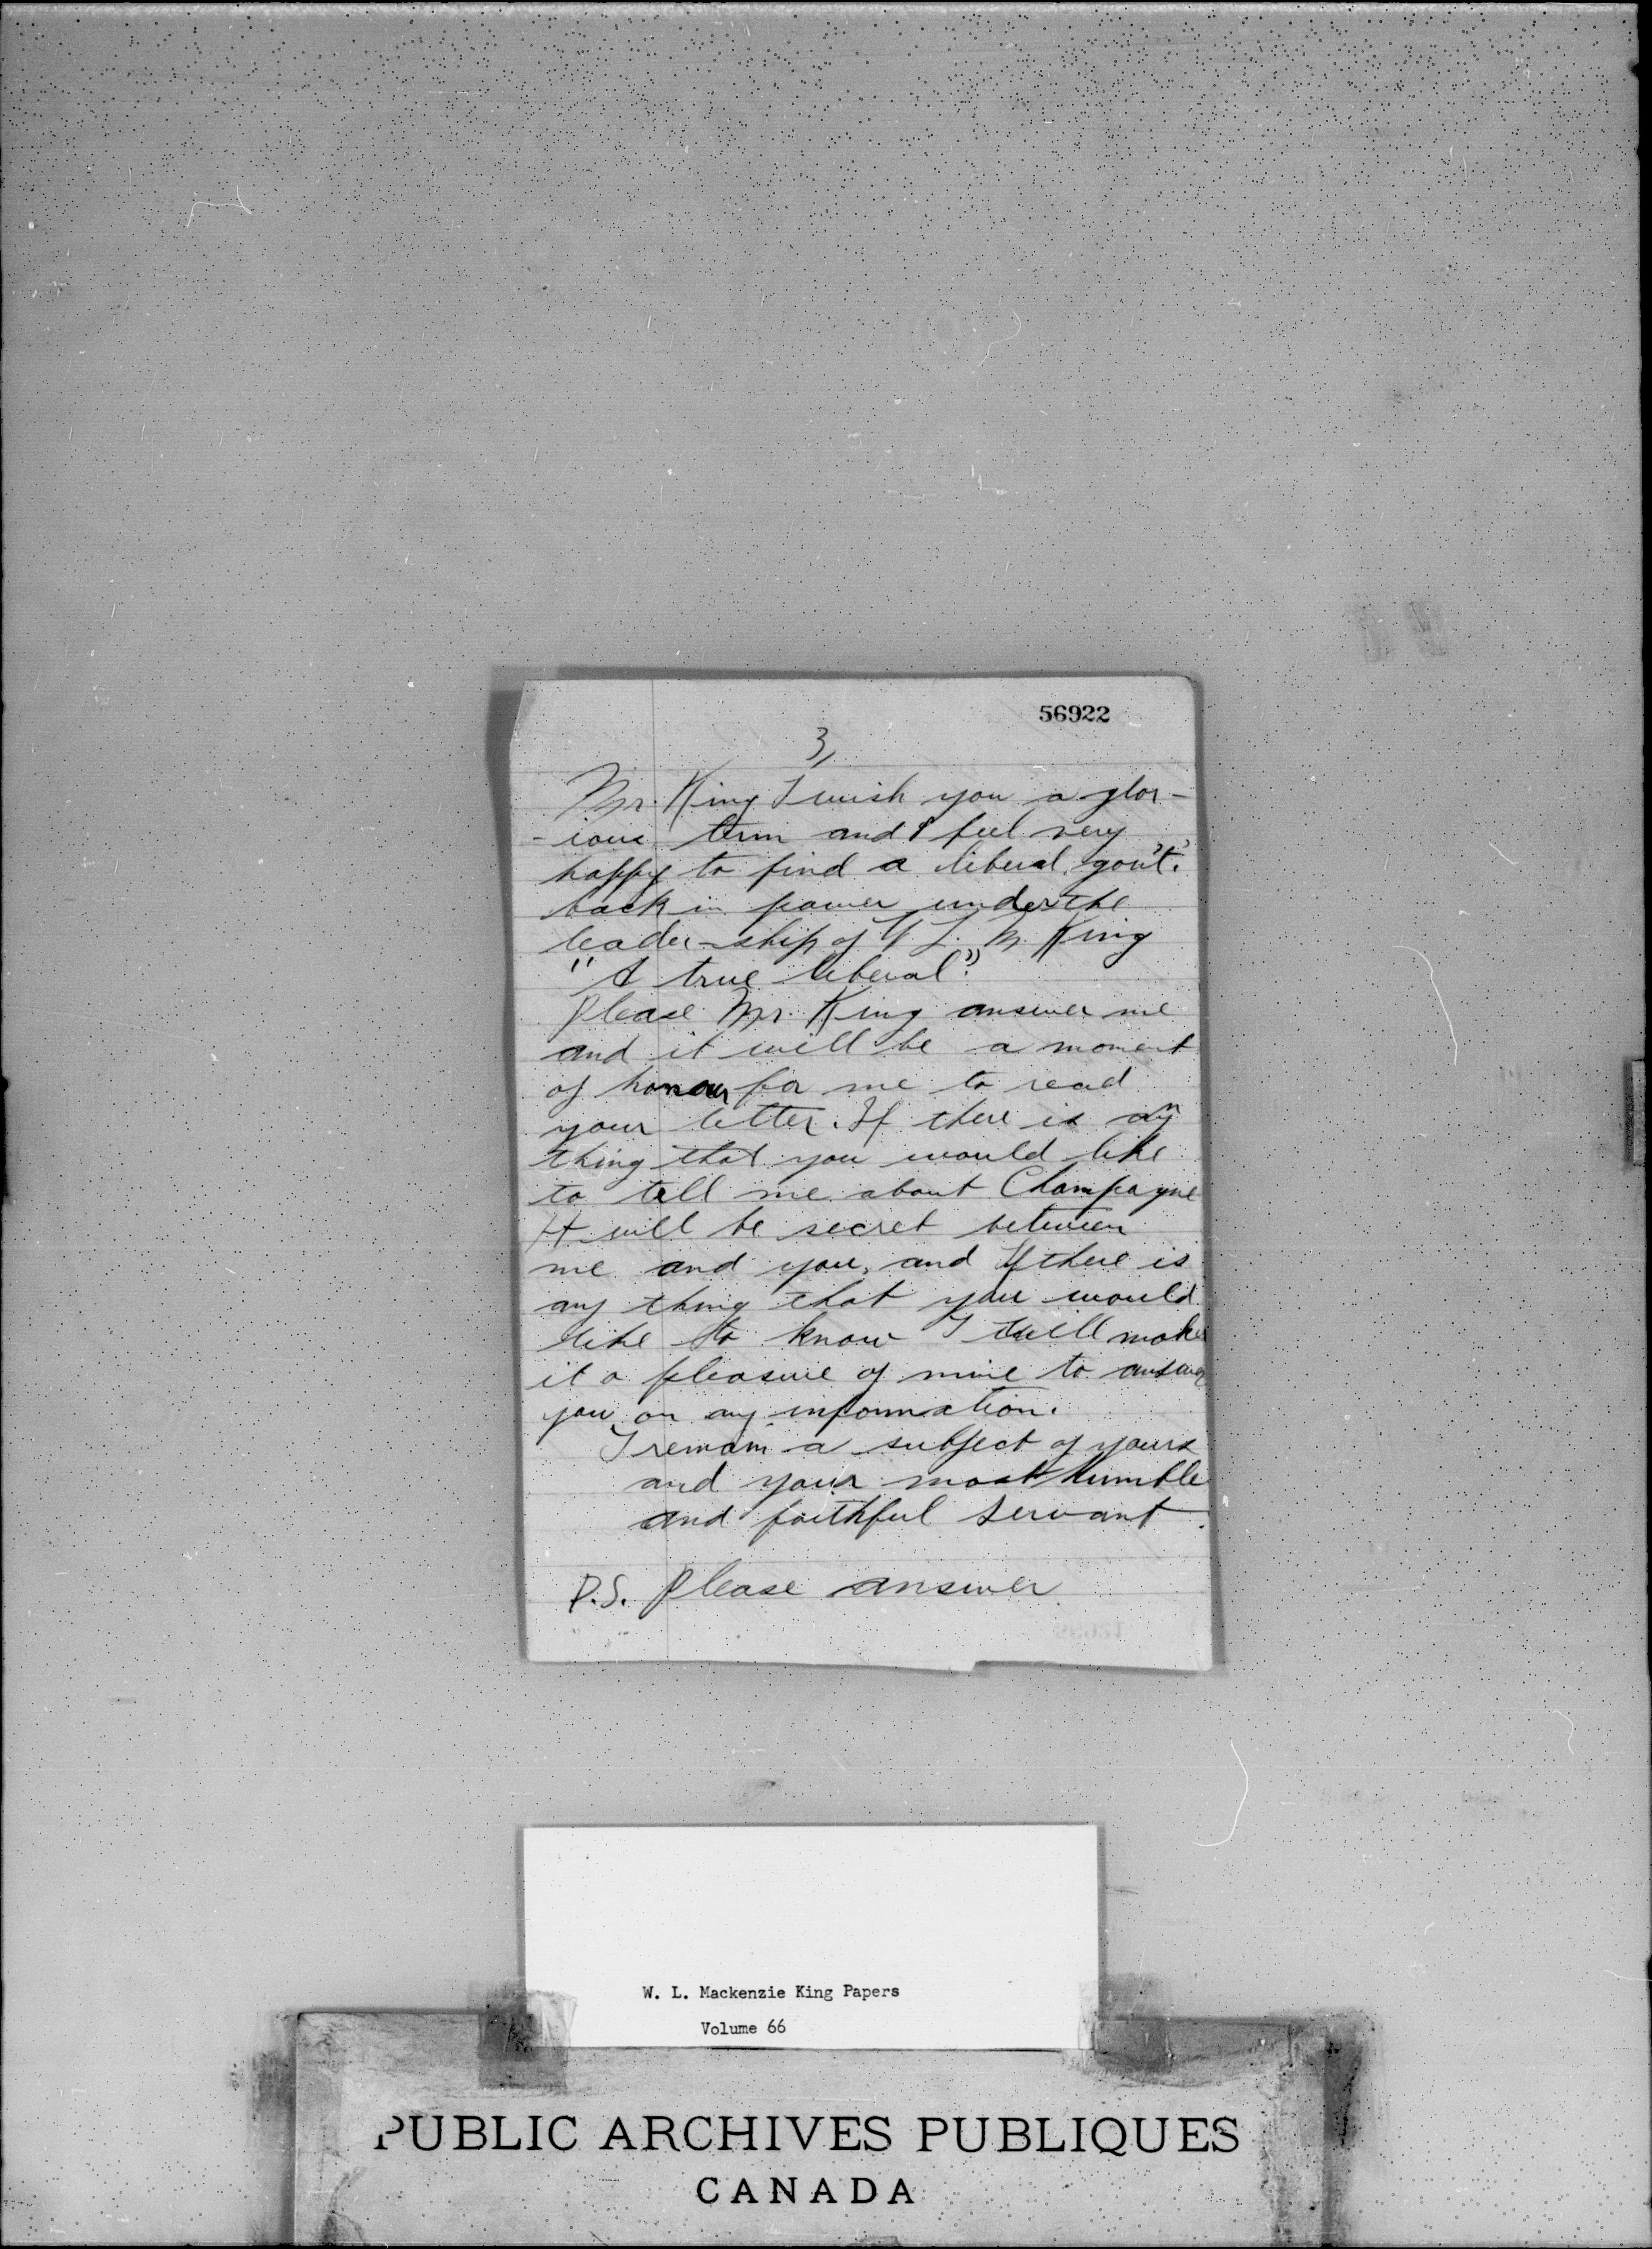 56922
3,
Mr. King I wish you a glor-
-ious term and I feel very
happy to find a liberal gov't.
back in power under the
leader-ship of L. M. King
"A true liberal".
Please Mr. King answer me
and it will be a moment
of honour for me to read
your letter. If there is any
thing that you would like
to tell me about Champagne
It will be secret between
me and you, and If there is
any thing that you would
like to know I will make
it a pleasure of mine to answer
you, on any information.
I remain a subject of yours
and your most humble
and faithful servant.
P.S. Please answer
W. L. Mackenzie King Papers
Volume 66
PUBLIC ARCHIVES PUBLIQUES
CANADA